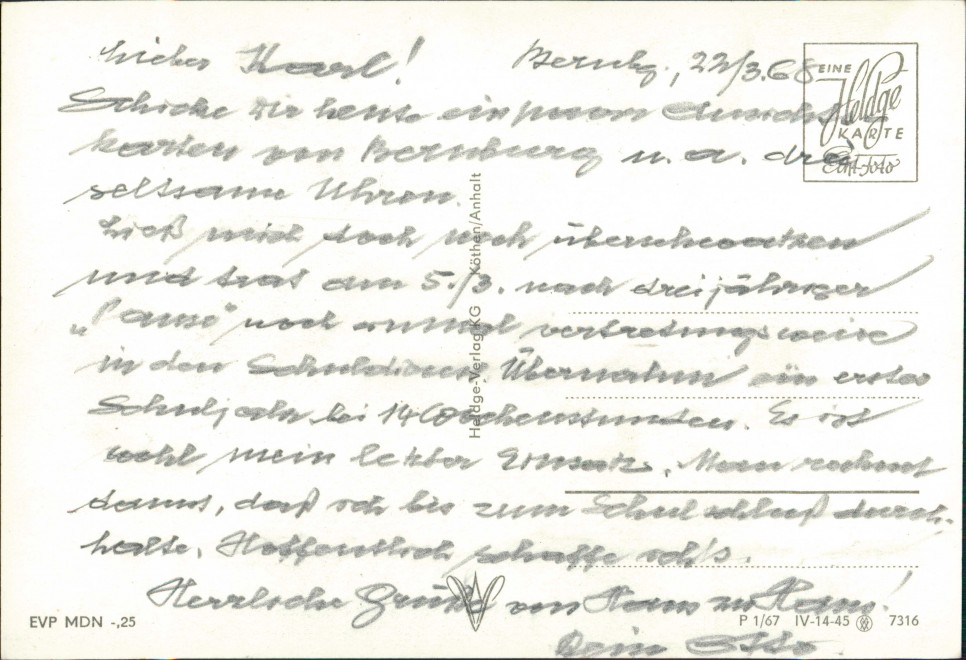 Lieber Karl! Bernbg., 22/3.68
Schicke dir heute ein paar Ansichts-
karten von Bernburg u. a. drei
seltsame Uhren.
Ließ mich doch noch überschwatzen
und trat am 5./3. nach dreijähriger
„Pause“ noch einmal vertretungsweise
in den Schuldienst. Übernahm ein erstes
Schuljahr bei 14 Wochenstunden. Es ist
wohl mein letzter Einsatz. Man rechnet
damit, daß ich bis zum Schulschluß durch-
halte. Hoffentlich schaffe ich's.
Herzliche Grüße von Haus zu Haus!
Dein Otto
EINE
Heldge
KARTE
Echt-Foto
Heldge-Verlag KG Köthen/Anhalt
EVP MDN -,25
P 1/67 IV-14-45 7316